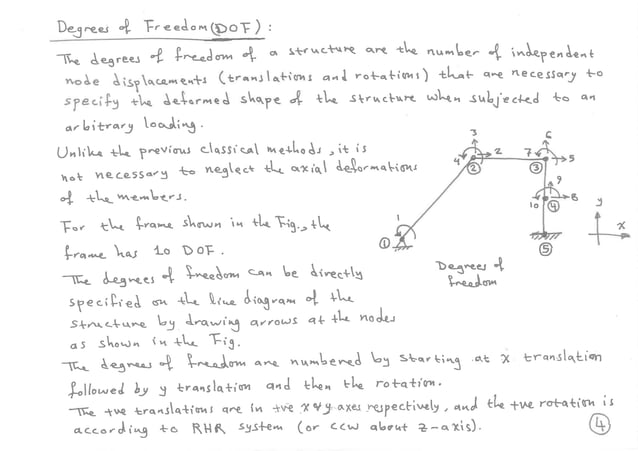 Degrees of Freedom (DOF) :
The degrees of freedom of a structure are the number of independent
node displacements (translations and rotations) that are necessary to
specify the deformed shape of the structure when subjected to an
arbitrary loading.
Unlike the previous classical methods, it is
not necessary to neglect the axial deformations
of the members.
For the frame shown in the Fig., the
frame has 10 DOF.
The degrees of freedom can be directly
specified on the line diagram of the
structure by drawing arrows at the nodes
as shown in the Fig.
3
6
4
2
7
5
2
3
9
1
10
4
8
y
1
5
x
Degrees of
freedom
The degrees of freedom are numbered by starting at x translation
followed by y translation and then the rotation.
The +ve translations are in +ve x & y axes respectively, and the +ve rotation is
according to RHR system (or ccw about z-axis).
4